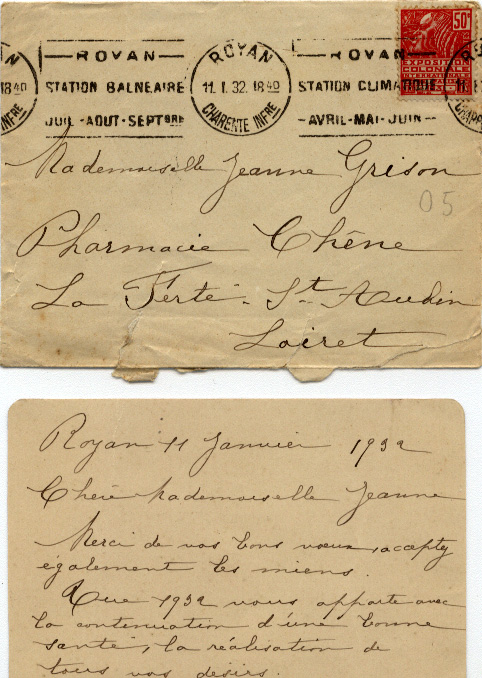 ROYAN ROYAN ROYAN
18 40 STATION BALNEAIRE 11. 1. 32. 18 40 STATION CLIMATIQUE 11.
INFRE JUIL - AOUT - SEPTBRE CHARENTE INFRE - AVRIL - MAI - JUIN -
50c
EXPOSITION
COLONIALE
INTERNATIONALE
Mademoiselle Jeanne Grison
05
Pharmacie Chêne
La Ferté - St-Audin
Loiret
Royan 11 Janvier 1932
Chère Mademoiselle Jeanne
Merci de vos bons vœux, acceptez
également les miens.
Que 1932 vous apporte avec
la continuation d'une bonne
santé, la réalisation de
tous vos désirs.